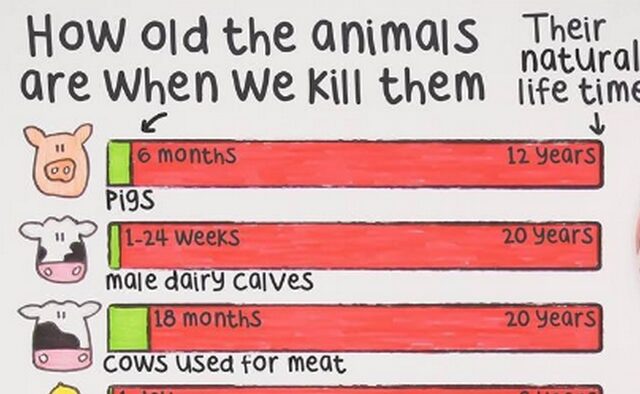 How old the animals
are when we kill them
Their
natural
life time
6 months
12 years
pigs
1-24 weeks
20 years
male dairy calves
18 months
20 years
cows used for meat